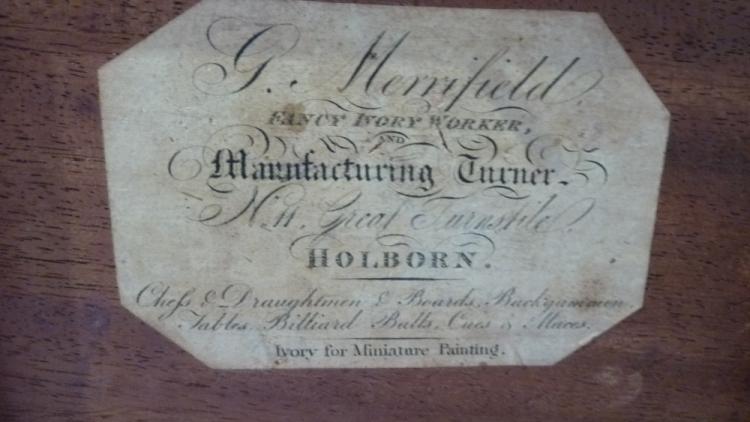 G. Merrifield.
FANCY IVORY WORKER,
AND
Manufacturing Turner.
Great Turnstile.
HOLBORN.
Chess & Draughtmen & Boards, Backgammon
Tables, Billiard Balls, Cues & Maces.
Ivory for Miniature Painting.